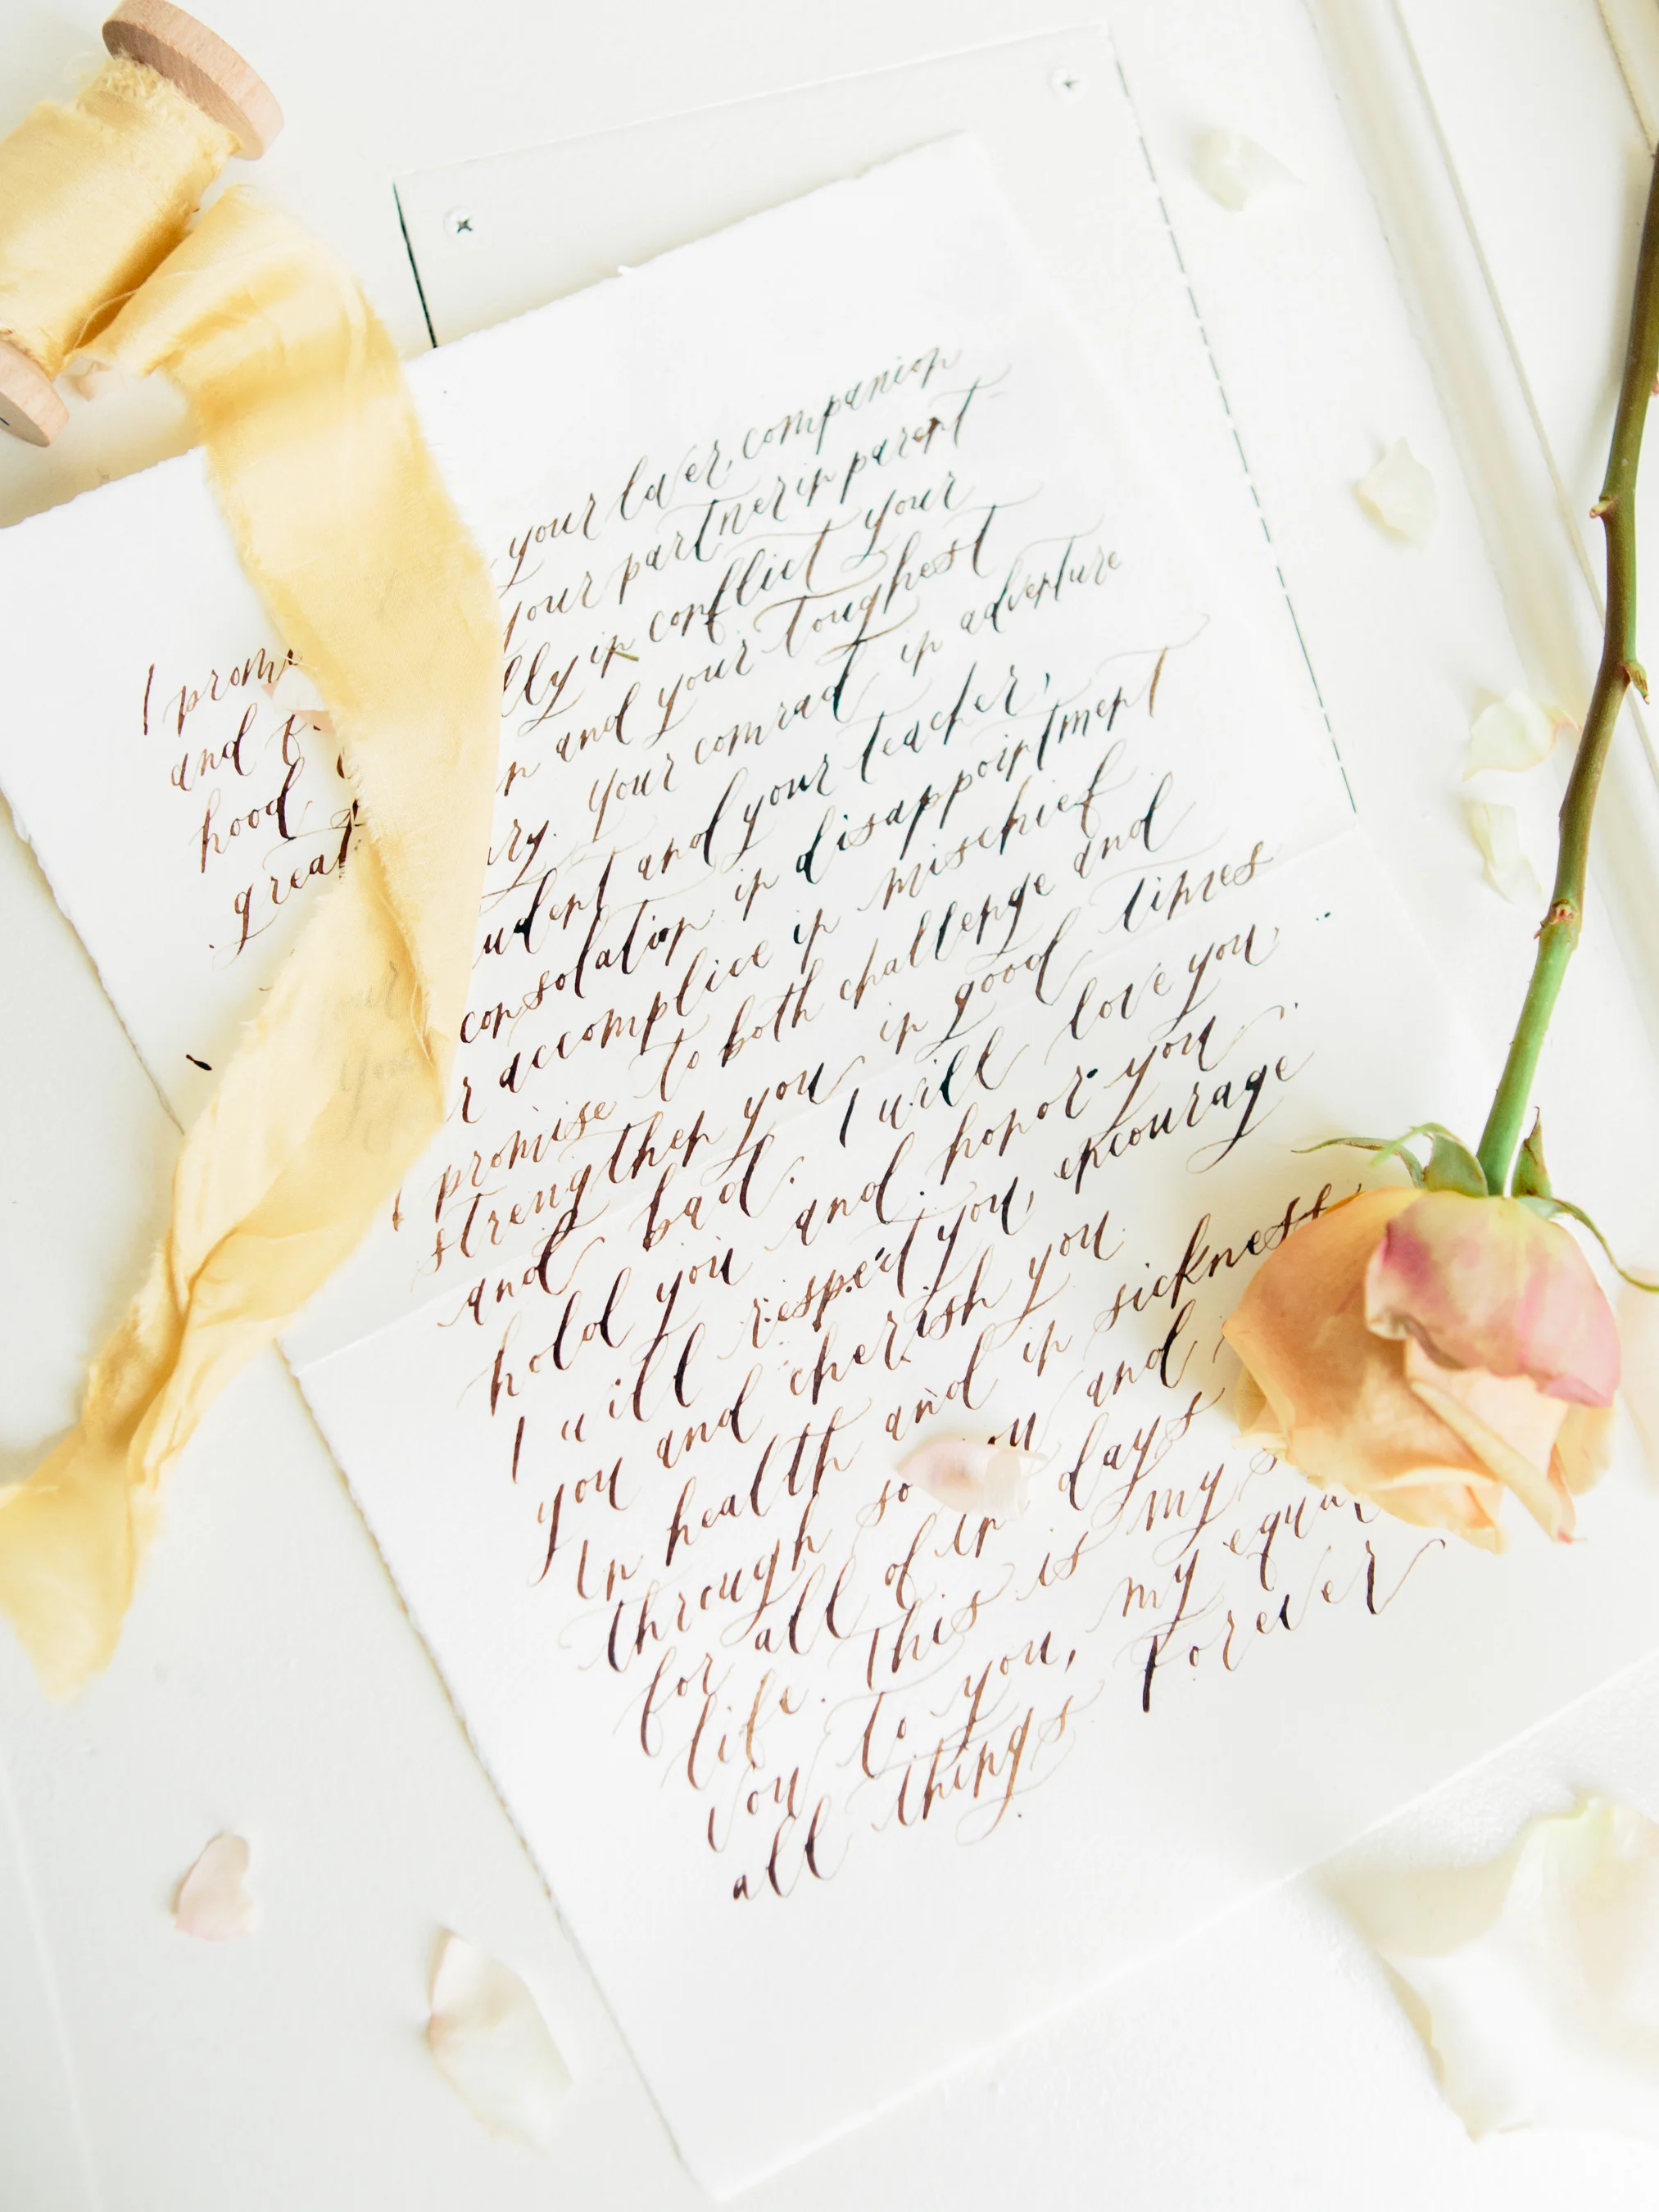 I prom your lover, companion
and f your partner in parent
hood lly in conflict your
great n and your toughest
ry. your comrad in adventure
udent and your teacher,
consolation in disappointment
r accomplice in mischief
I promise to both challenge and
strengthen you in good times
and bad. I will love you
hold you and honor you
I will respect you, encourage
you and cherish you
In health and in sickness
through so and
for all of days
life. This is my
vow to you, my equa
all things forever